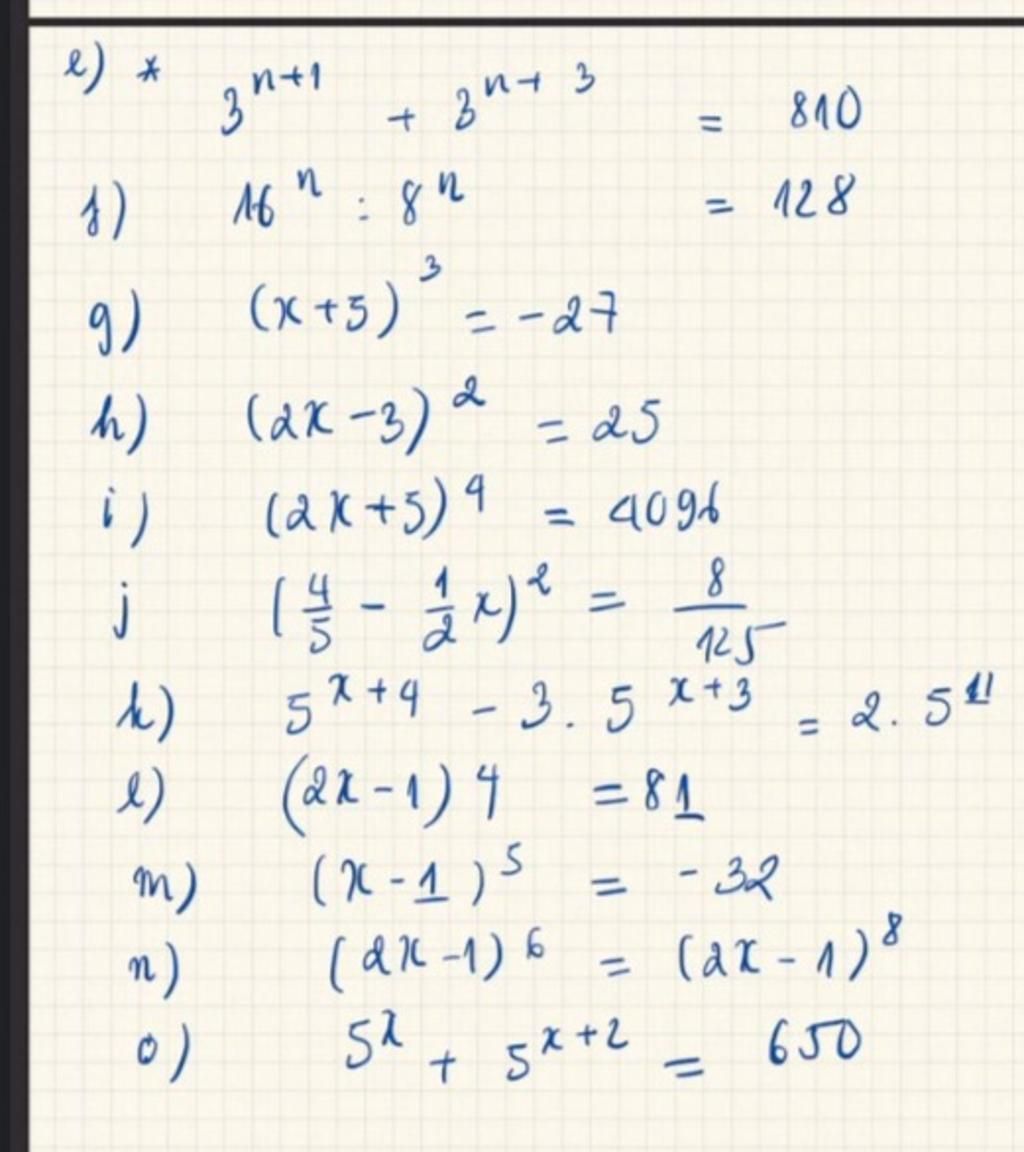 e) * 3^{n+1} + 3^{n+3} = 810
f) 16^n : 8^n = 128
g) (x+5)^3 = -27
h) (2x-3)^2 = 25
i) (2x+5)^4 = 4096
j (4/5 - 1/2 x)^2 = 8/125
k) 5^{x+4} - 3. 5^{x+3} = 2. 5^{11}
l) (2x-1)4 = 81
m) (x-1)^5 = -32
n) (2x-1)^6 = (2x-1)^8
o) 5^x + 5^{x+2} = 650